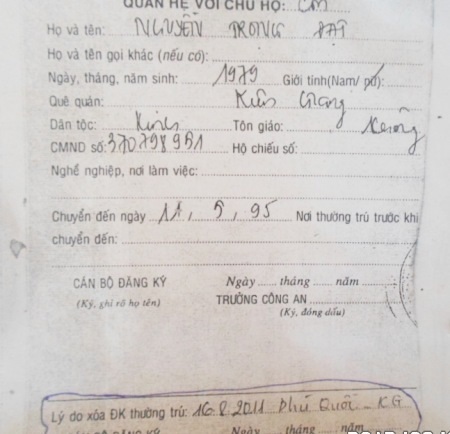 QUAN HỆ VỚI CHỦ HỘ: Em
Họ và tên: NGUYỄN TRỌNG ĐẠT
Họ và tên gọi khác (nếu có):
Ngày, tháng, năm sinh: 1979 Giới tính(Nam/ nữ):
Quê quán: Kiên Giang
Dân tộc: Kinh Tôn giáo: Không
CMND số: 370798951 Hộ chiếu số:
Nghề nghiệp, nơi làm việc:
Chuyển đến ngày 11, 9, 95 Nơi thường trú trước khi
chuyển đến:
CÁN BỘ ĐĂNG KÝ Ngày tháng năm
(Ký, ghi rõ họ tên) TRƯỞNG CÔNG AN
(Ký, đóng dấu)
Lý do xóa ĐK thường trú: 16.8.2011 Phú Quốc - KG
Ngày tháng năm